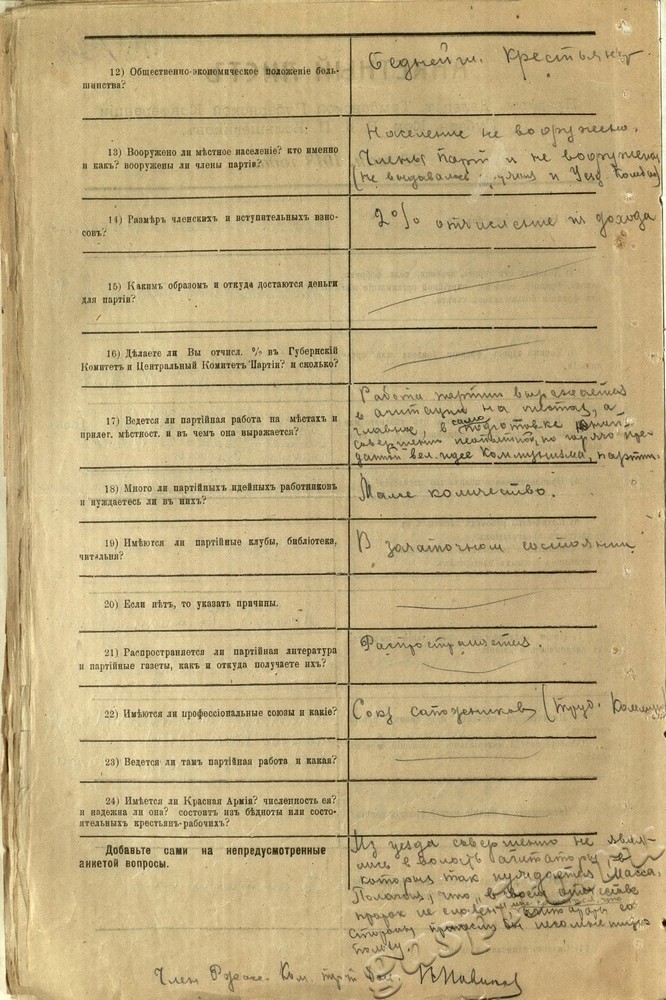 12) Общественно-экономическое положеніе боль-
шинства?
Беднейш. Крестьяне
13) Вооружено ли мѣстное населеніе? кто именно
и какъ? вооружены ли члены партіи?
Население не вооружено.
Члены парт и не вооружены
(не выдавалось и Уезд
14) Размѣръ членскихъ и вступительныхъ взно-
совъ?
2% отчисление из дохода
15) Какимъ образомъ и откуда достаются деньги
для партіи?
16) Дѣлаете ли Вы отчисл. % въ Губернскій
Комитетъ и Центральный Комитетъ Партіи? и сколько?
17) Ведется ли партійная работа на мѣстахъ и
прилег. мѣстност. и въ чемъ она выражается?
Работа партии выражается
в агитации на местах, а
главное, в само подготовке
совершенно но горячо пре-
данной вел. идее Коммунизма, партии.
18) Много ли партійныхъ идейныхъ работниковъ
и нуждаетесь ли въ нихъ?
Малое количество.
19) Имѣются ли партійные клубы, библіотека,
читальня?
В зачаточном состоянии
20) Если нѣтъ, то указать причины.
21) Распространяется ли партійная литература
и партійные газеты, какъ и откуда получаете ихъ?
Распространяется.
22) Имѣются ли профессіональные союзы и какіе?
Союз сапожников (Труд. Коммун
23) Ведется ли тамъ партійная работа и какая?
24) Имѣется ли Красная Армія? численность ея?
и надежна ли она? состоитъ изъ бѣдноты или состо-
ятельныхъ крестьянъ-рабочихъ?
Добавьте сами на непредусмотренные
анкетой вопросы.
Из уезда совершенно не явля-
лись в волость агитаторы в
которых так нуждается масса.
Полагаю, что "в своем отечестве
пророк не славен", агитаторы со
стороны принесли бы несомненную
пользу.
Член Ком. парт